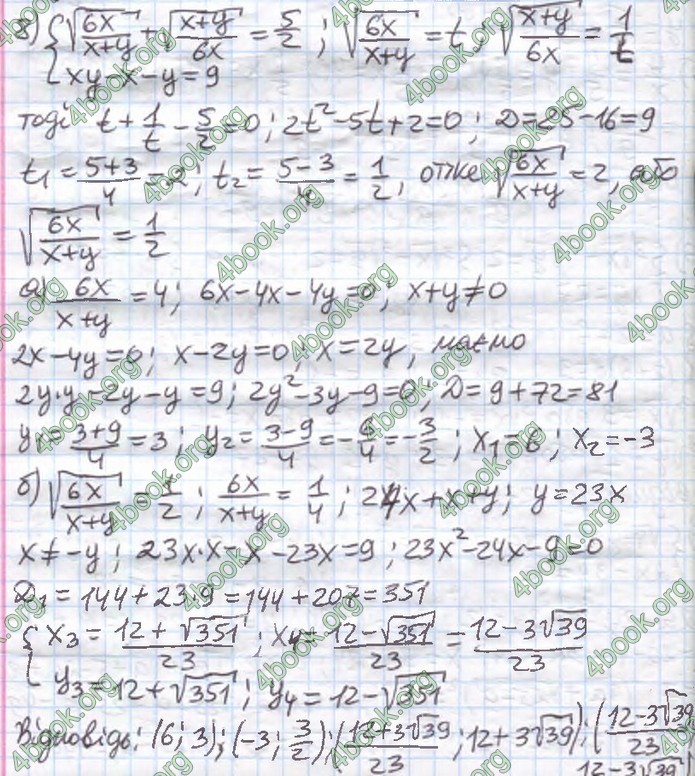 8) { √(6x/(x+y)) + √((x+y)/6x) = 5/2 ; √(6x/(x+y)) = t ; √((x+y)/6x) = 1/t
xy - x - y = 9
тоді t + 1/t - 5/2 = 0 ; 2t² - 5t + 2 = 0 ; D = 25 - 16 = 9
t₁ = (5+3)/4 = 2 ; t₂ = (5-3)/4 = 1/2 , отже √(6x/(x+y)) = 2, або
√(6x/(x+y)) = 1/2
а) 6x/(x+y) = 4 ; 6x - 4x - 4y = 0 ; x+y ≠ 0
2x - 4y = 0 ; x - 2y = 0 ; x = 2y , маємо
2y·y - 2y - y = 9 ; 2y² - 3y - 9 = 0 ; D = 9 + 72 = 81
y₁ = (3+9)/4 = 3 ; y₂ = (3-9)/4 = -6/4 = -3/2 ; x₁ = 6 ; x₂ = -3
б) √(6x/(x+y)) = 1/2 ; 6x/(x+y) = 1/4 ; 24x + x + y ; y = 23x
x ≠ -y ; 23x·x - x - 23x = 9 ; 23x² - 24x - 9 = 0
D₁ = 144 + 23·9 = 144 + 207 = 351
{ x₃ = (12 + √351)/23 ; x₄ = (12 - √351)/23 = (12 - 3√39)/23
y₃ = 12 + √351 ; y₄ = 12 - √351
Відповідь: (6; 3); (-3; 3/2); ((12+3√39)/23 ; 12+3√39); ((12-3√39)/23
12-3√39)
4book.org